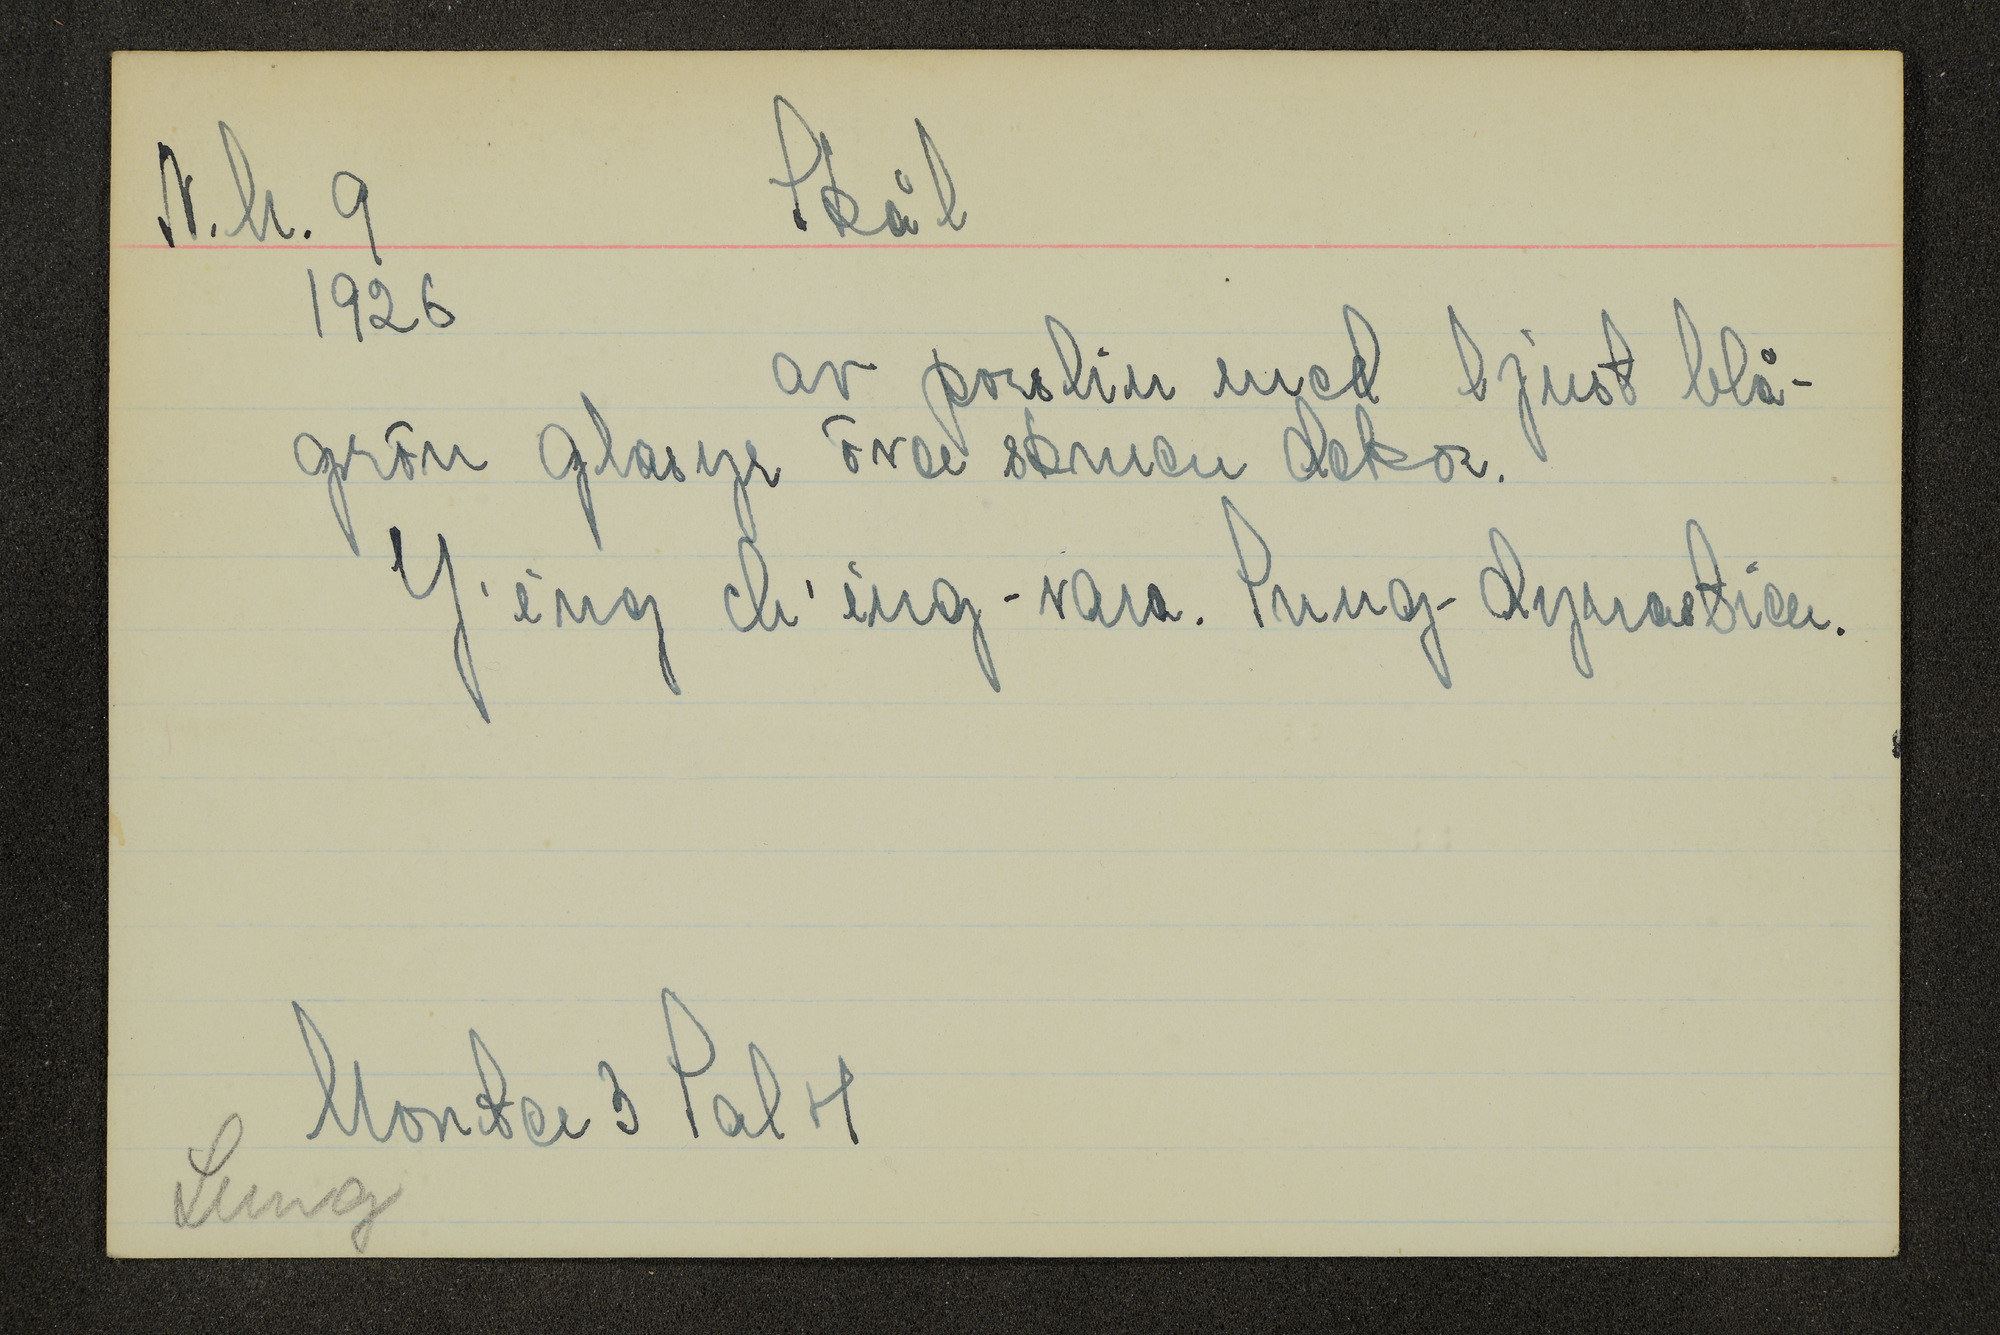 N.M. 9 Skål
1926
av porslin med ljust blå-
grön glasyr över skuren dekor.
Y'ing ch'ing-vara. Sung-dynastien.
Monter 3 Sal 4
Sung